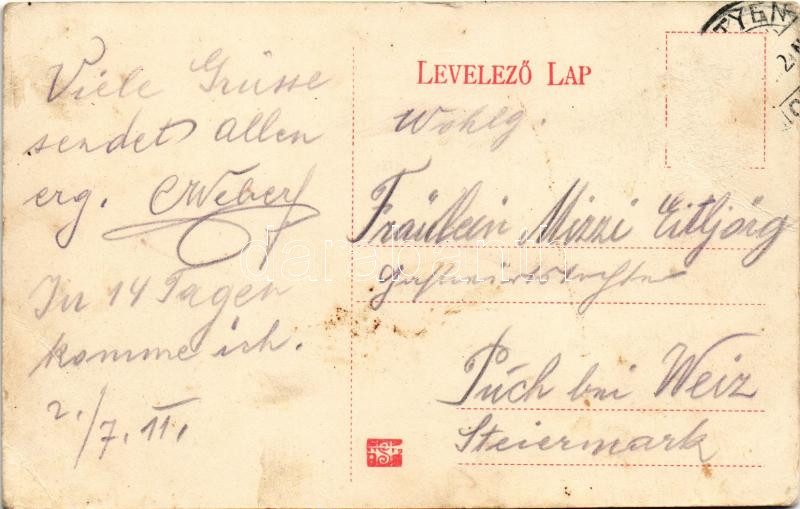 Viele Grüsse
sendet allen
erg. CWeber
In 14 Tagen
komme ich.
2./7.11.
LEVELEZŐ LAP
Wohlg.
Fräulein Mizzi Eitljörg
Gastwirtstochter
Puch bei Weiz
Steiermark
TYEN
darabanth